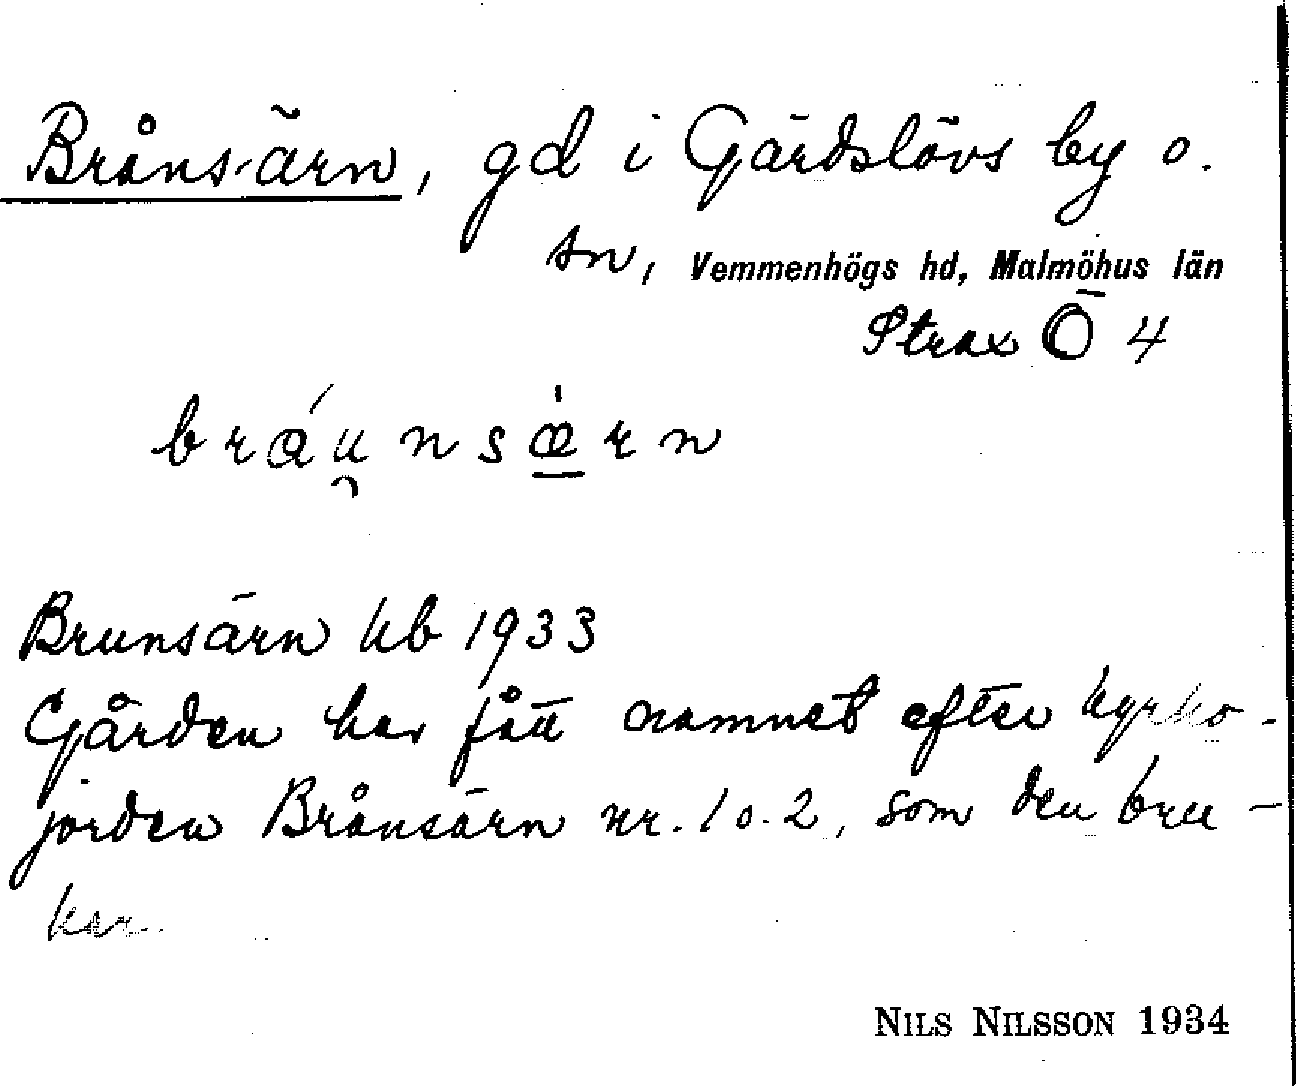 Bråns-ärn, gd i Gärdslövs by o.
sn, Vemmenhögs hd, Malmöhus län
Strax Ö 4
bráu̯nsæ̲̍rn
Brunsärn kb 1933
Gården har fått namnet efter kyrko-
jorden Brånsärn nr. 1 o. 2, som den bru-
kar.
NILS NILSSON 1934